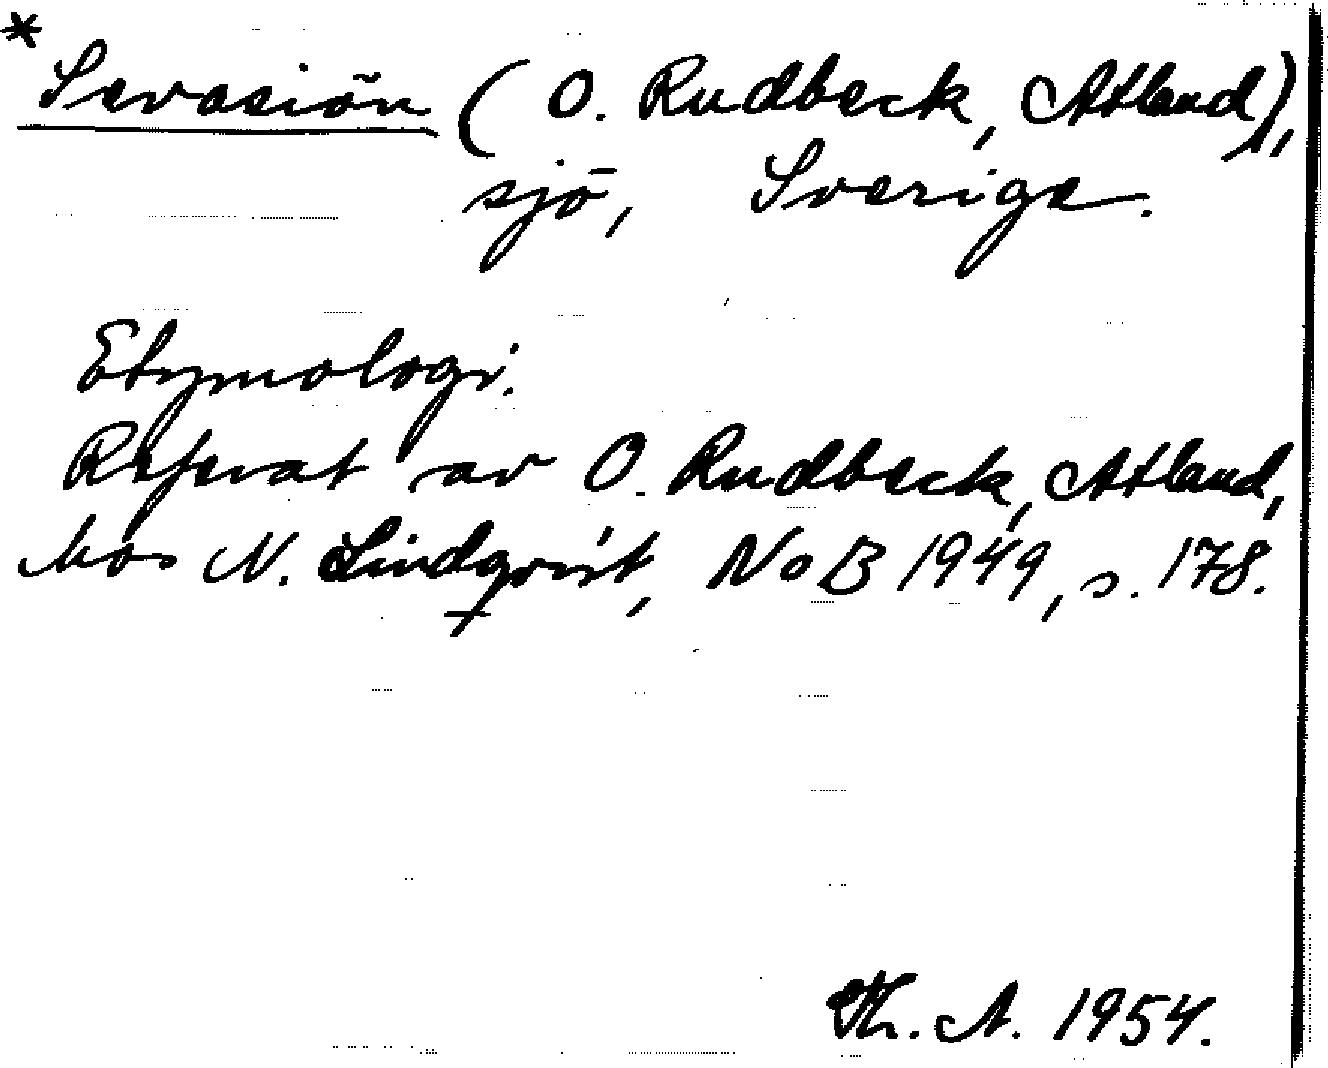 * Sevasiön (O. Rudbeck, Atland),
sjö, Sverige.
Etymologi.
Referat av O. Rudbeck, Atland,
hos N. Lindqvist, NoB 1949, s. 178.
Th. A. 1954.